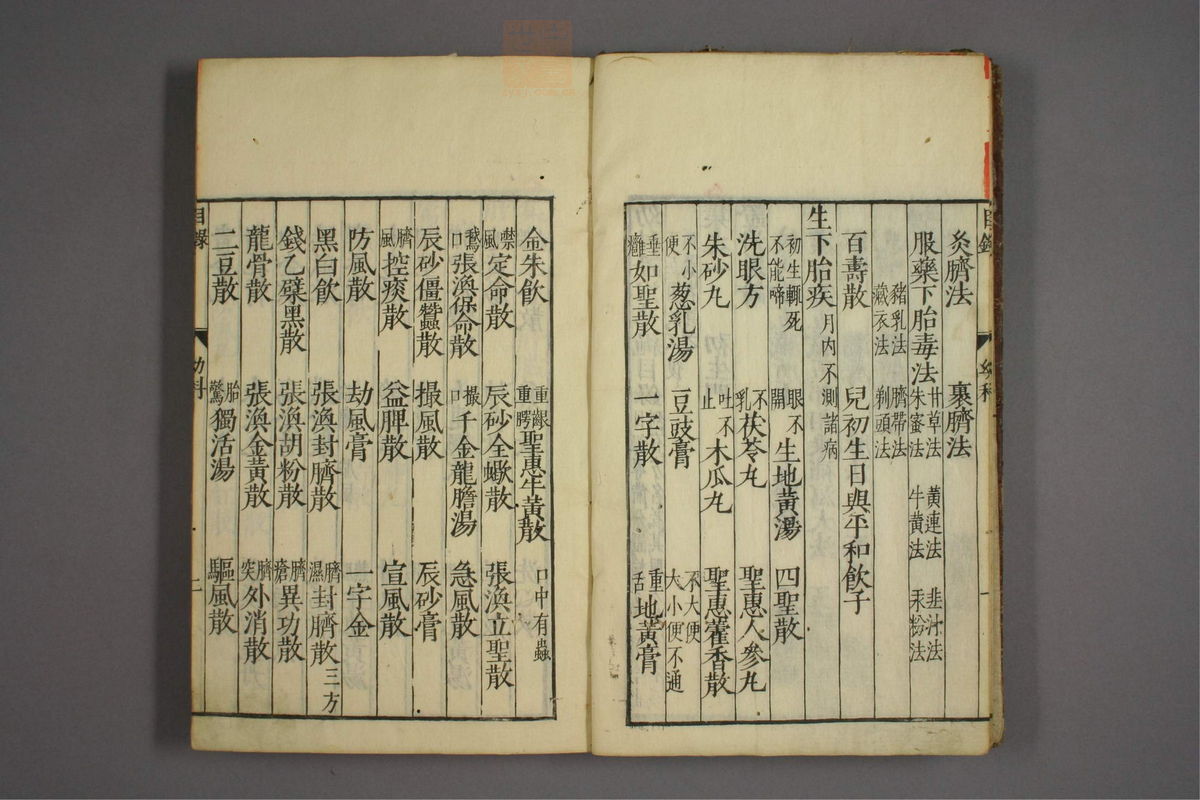 目錄 幼科 一
灸臍法 裹臍法
服藥下胎毒法 甘草法 朱蜜法 黄連法 牛黄法 韭汁法 汞粉法
豬乳法 藏衣法 臍帶法 剃頭法
百壽散 兒初生日與平和飲子
生下胎疾 月内不測諸病
初生輒死不能啼 眼不開 生地黄湯 四聖散
洗眼方 不乳 茯苓丸 聖惠人參丸
朱砂丸 吐不止 木瓜丸 聖惠藿香散
不小便 葱乳湯 豆豉膏 不大便 大小便不通
垂癰 如聖散 一字散 重舌 地黄膏
金朱飲 重齦重腭 聖惠牛黄散 口中有蟲
噤風 定命散 辰砂全蠍散 張渙立聖散
鵞口 張渙保命散 撮口 千金龍膽湯 急風散
辰砂僵蠶散 撮風散 辰砂膏
臍風 控痰散 益脾散 宣風散
防風散 劫風膏 一字金
黑白飲 張渙封臍散 臍濕 封臍散三方
錢乙檗黑散 張渙胡粉散 臍瘡 異功散
龍骨散 張渙金黄散 臍突 外消散
二豆散 胎驚 獨活湯 驅風散
目錄 幼科 二